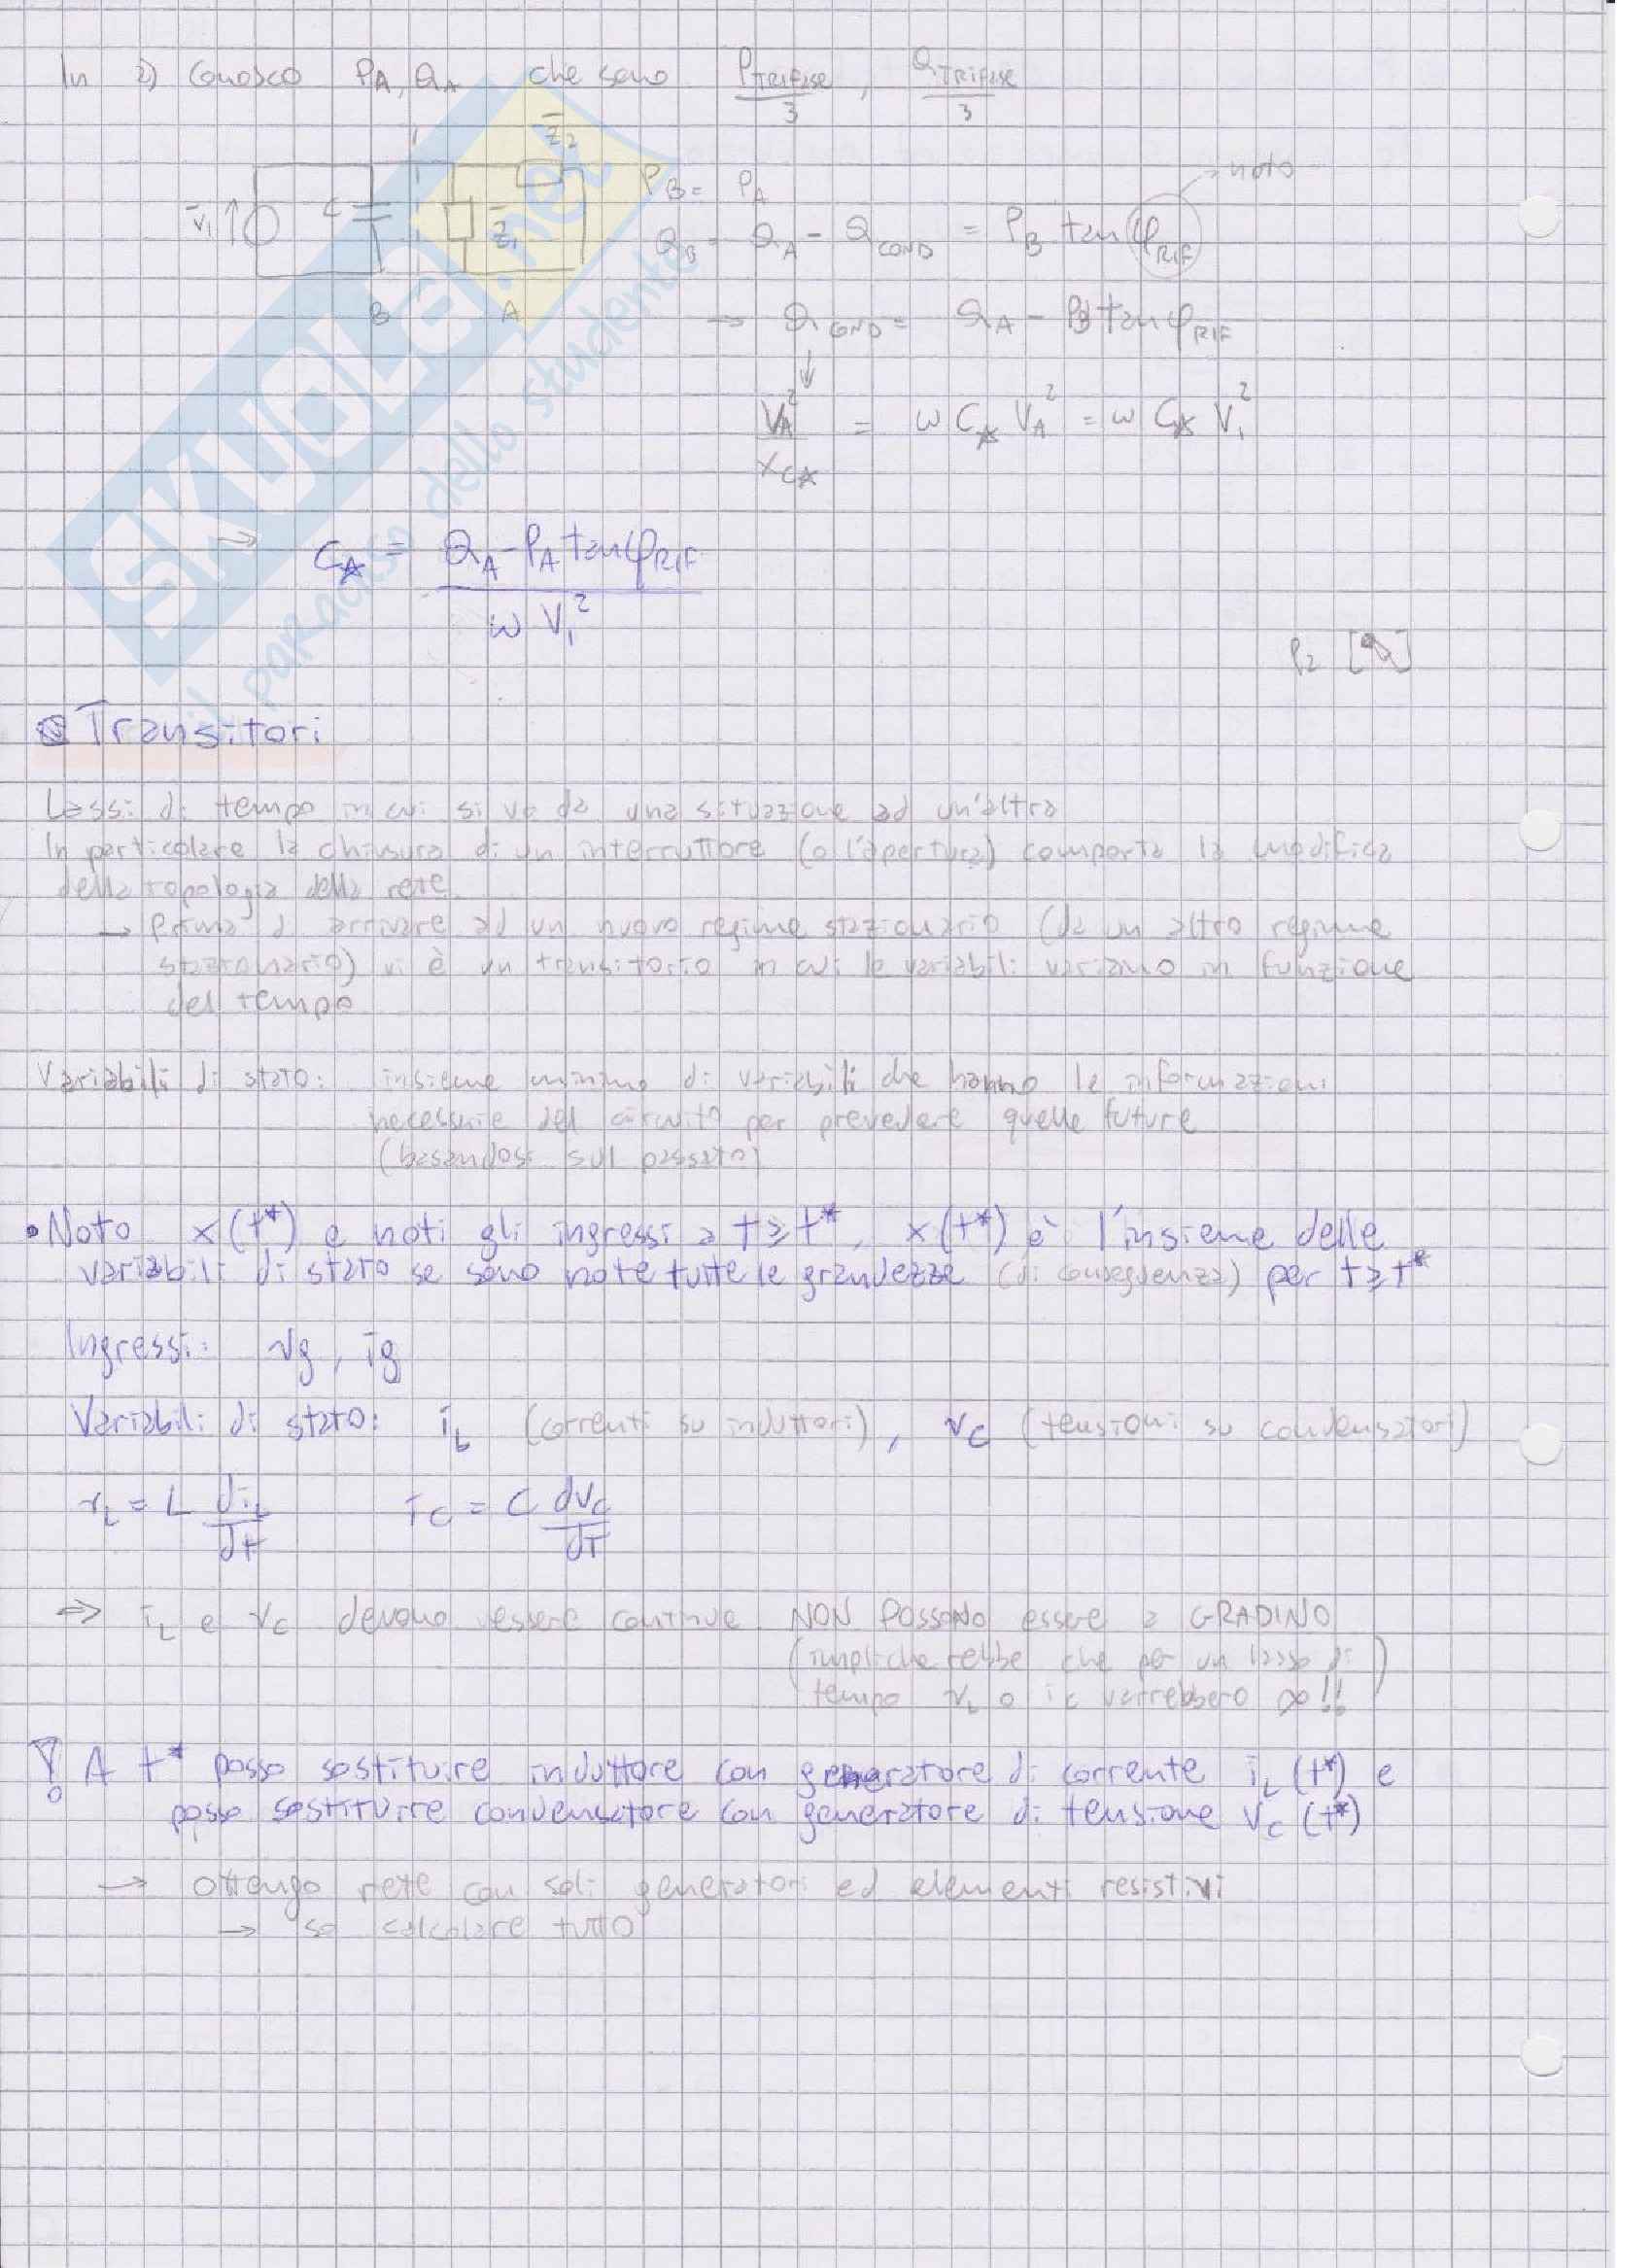 In 2) Conosco PA, QA che sono PTRIFASE/3 , QTRIFASE/3
Z̄2
→ noto
V̄1 ↑ C Z̄1
PB = PA
QB = QA - QCOND = PB tan φRIF
B A
→ QCOND = QA - PB tan φRIF
↓
VA²/XC⋆ = ω C⋆ VA² = ω C⋆ V1²
⇒ C⋆ = (QA - PA tan φRIF) / (ω V1²)
Transitori
Lassi di tempo in cui si va da una situazione ad un'altra
In particolare la chiusura di un interruttore (o l'apertura) comporta la modifica
della topologia della rete.
→ Prima di arrivare ad un nuovo regime stazionario (da un altro regime
stazionario) vi è un transitorio in cui le variabili variano in funzione
del tempo
Variabili di stato: insieme minimo di variabili che hanno le informazioni
necessarie del circuito per prevedere quelle future
(basandosi sul passato)
• Noto x(t*) e noti gli ingressi a t≥t*, x(t*) è l'insieme delle
variabili di stato se sono note tutte le grandezze (di conseguenza) per t≥t*
Ingressi: vg, ig
Variabili di stato: iL (correnti su induttori), vC (tensioni su condensatori)
vL = L diL/dt iC = C dvC/dt
⇒ iL e vC devono essere continue NON POSSONO essere a GRADINO
(implicherebbe che per un lasso di
tempo vL o iC varrebbero ∞!!)
! A t* posso sostituire induttore con generatore di corrente iL(t*) e
posso sostituire condensatore con generatore di tensione vC(t*)
→ ottengo rete con soli generatori ed elementi resistivi
→ so calcolare tutto
SKUOLA.net
il paradiso dello studente